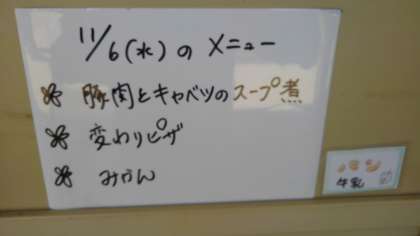 11/6(水)のメニュー
豚肉とキャベツのスープ煮
変わりピザ
みかん
パン
牛乳